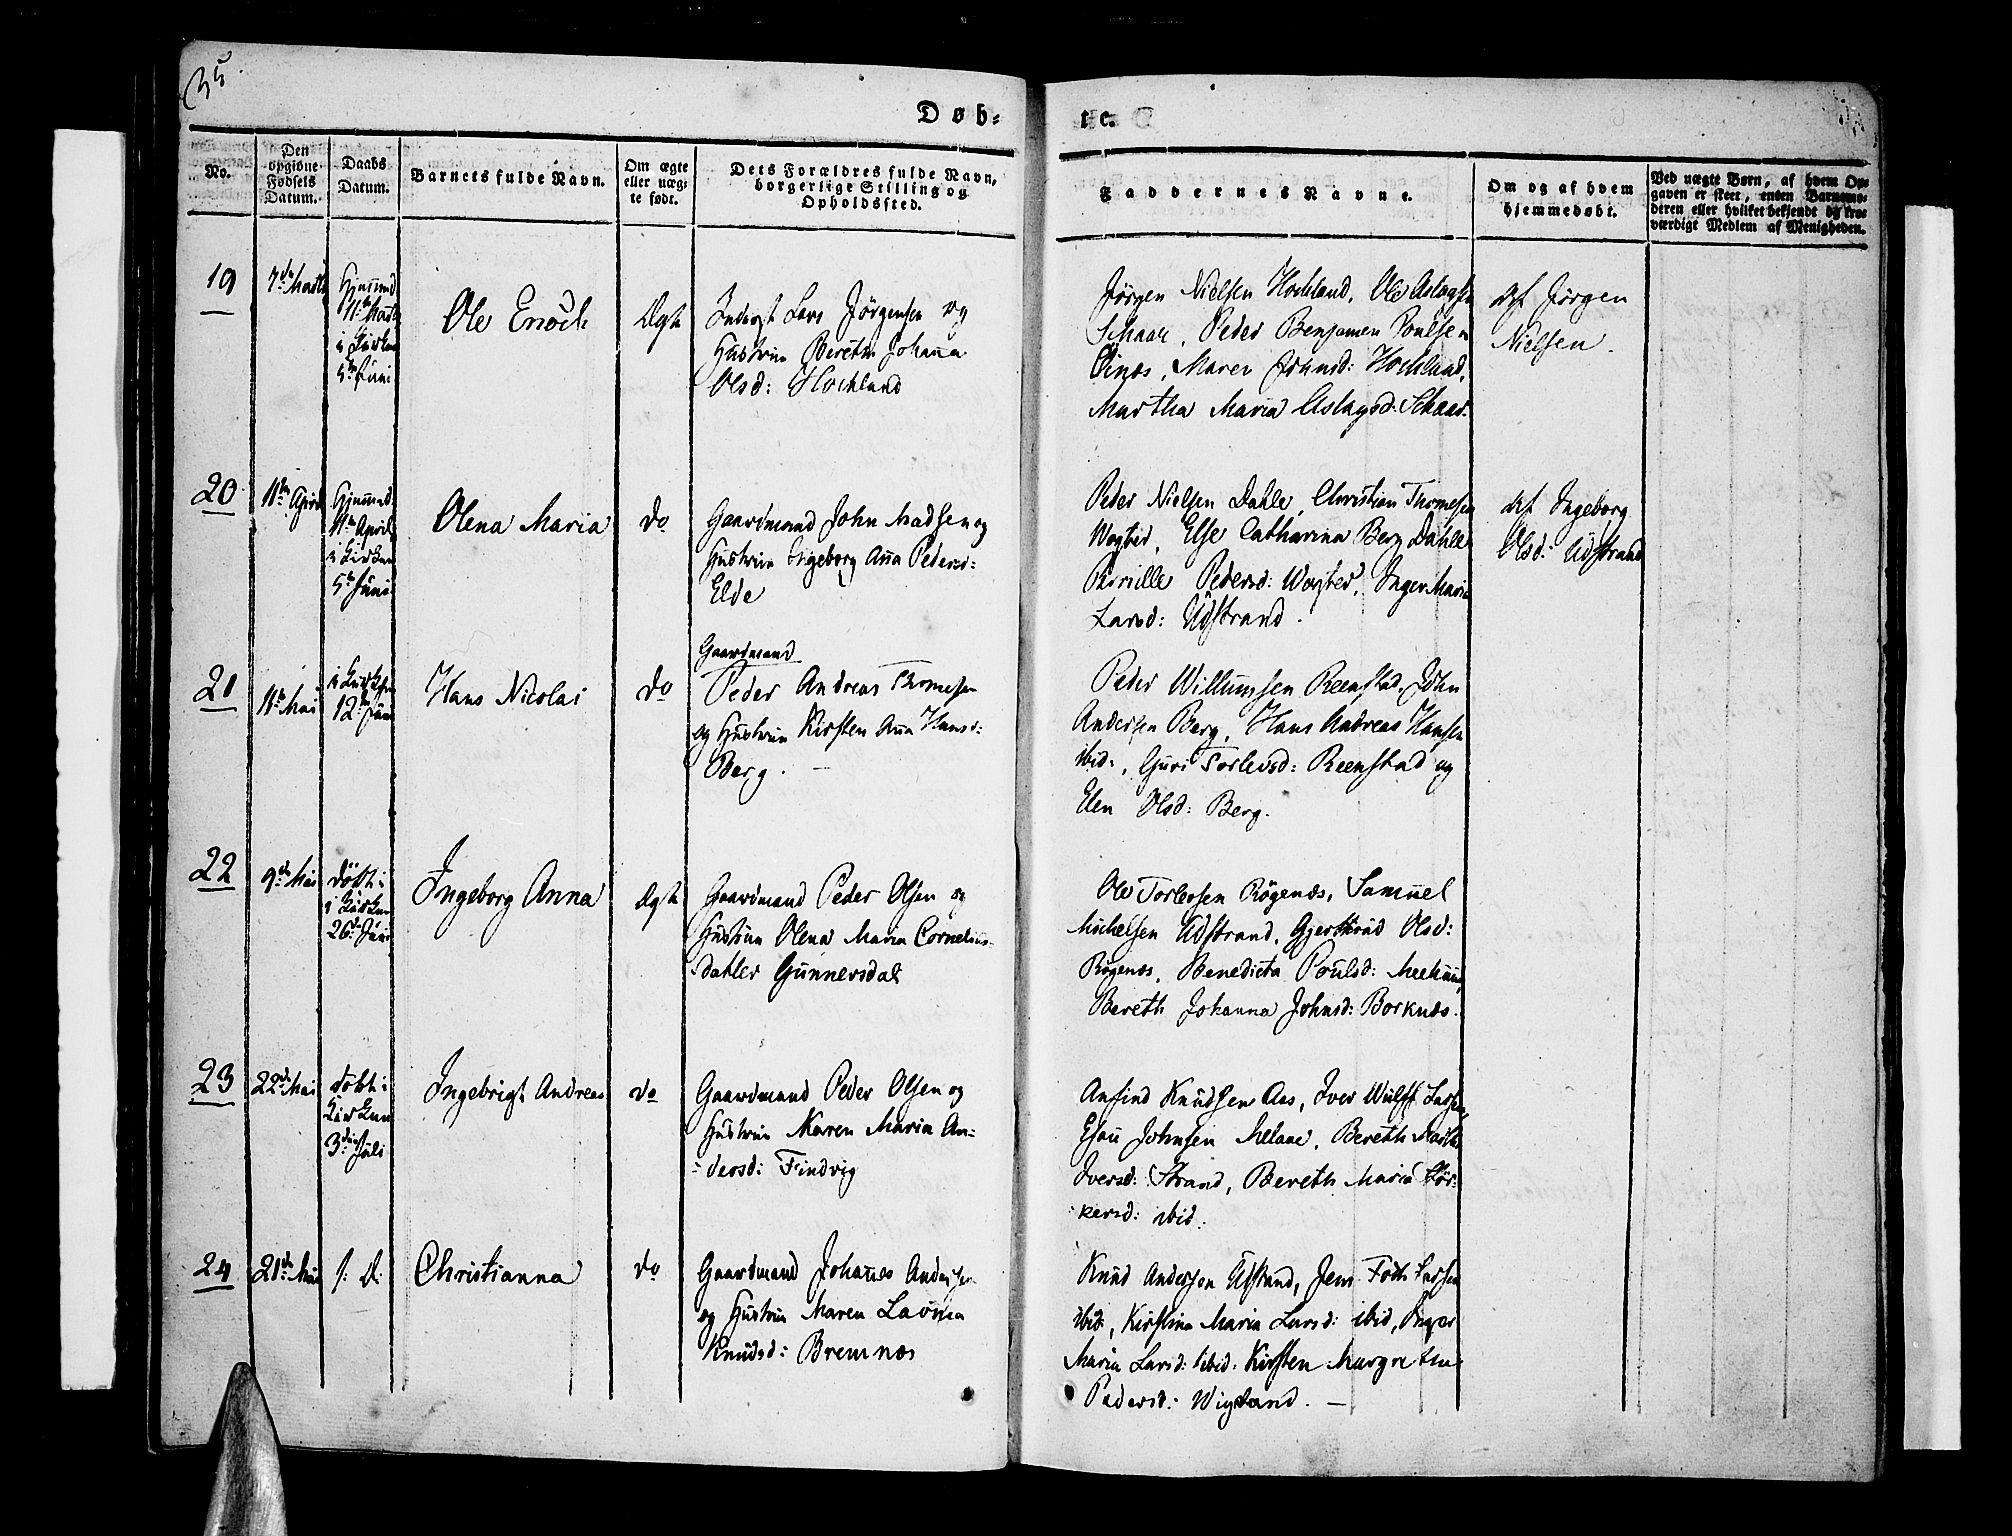 35.
Døb-
te.
No.
Den opgivne Fødsels Datum.
Daabs Datum.
Barnets fulde Navn.
Om ægte eller uæg-te født.
Dets Forældres fulde Navn, borgerlige Stilling og Opholdssted.
Faddernes Navne.
Om og af hvem hjemmedøbt.
Ved uægte Børn, af hvem Op-
gaven er skeet, enten Barnemo-
deren eller hvilket bekjendt og tro-
værdigt Medlem af Menigheden.
19
7de Marts
Hjemmed
11te Marts
i Kirken
5te Juni
Ole Enoch
Ægte
Inderst Lars Jörgensen og
Hustrue Bereth Johanna
Olsd: Hochland
Jörgen Nielsen Hochland, Ole Aslags
Schaar, Peder Benjamen Poulsen
Maren Hochland,
Martha Maria Aslagsd: Schaar.
af Jörgen
Nielsen.
20
11te April
Hjemmed
11te April
i Kirken
5te Juni
Olena Maria
do
Gaardmand John Madsen og
Hustrue Ingeborg Anna Pedersd:
Elde
Peder Nielsen Dahle, Christian Thomesen
Wogter, Else Catharina Berg Dahle
Pernille Pedersd: Wogter, Inger Maria
Larsd: Udstrand.
af Ingeborg
Olsd: Udstrand
21
11te Mai
i Kirken
12te Juni
Hans Nicolai
do
Gaardmand
Peder Andreas Thomesen
og Hustrue Kirsten Anna Hansd:
Berg.
Peder Willumsen Reenstad, John
Andersen Berg, Hans Andreas Hansen
ibid:, Guri Torlevsd: Reenstad og
Elen Olsd: Berg.
22
9de Mai
döbt
i Kirken
26de Juni
Ingeborg Anna
Ægte
Gaardmand Peder Olsen og
Hustrue Olena Maria Cornelius-
datter Gunnersdal
Ole Torlevsen Rögenæs, Samuel
Michelsen Udstrand, Gjertrud Olsd:
Rögenæs, Benedicta Poulsd:
Bereth Johanna Johnsd: Borknæs.
23
22de Mai
döbt i
Kirken
3die Juli
Ingebrigt Andreas
do
Gaardmand Peder Olsen og
Hustrue Karen Maria An-
dersd: Findvig
Anfind Knudsen Aas, Iver Wulff Larsen
Esau Johnsen Melaae, Bereth Martha
Iversd: Strand, Bereth Maria Stör-
kersd: ibid:
24
21de Mai
s: D:
Christianna
do
Gaardmand Johannes Andersen
og Hustrue Maren Lavina
Knudsd: Bremnæs
Knud Andersen Udstrand, Jens Foth Larsen
ibid:, Kirstina Maria Larsd: ibid, Inger
Maria Larsd: ibid: Kirsten Margretha
Pedersd: Wigland.